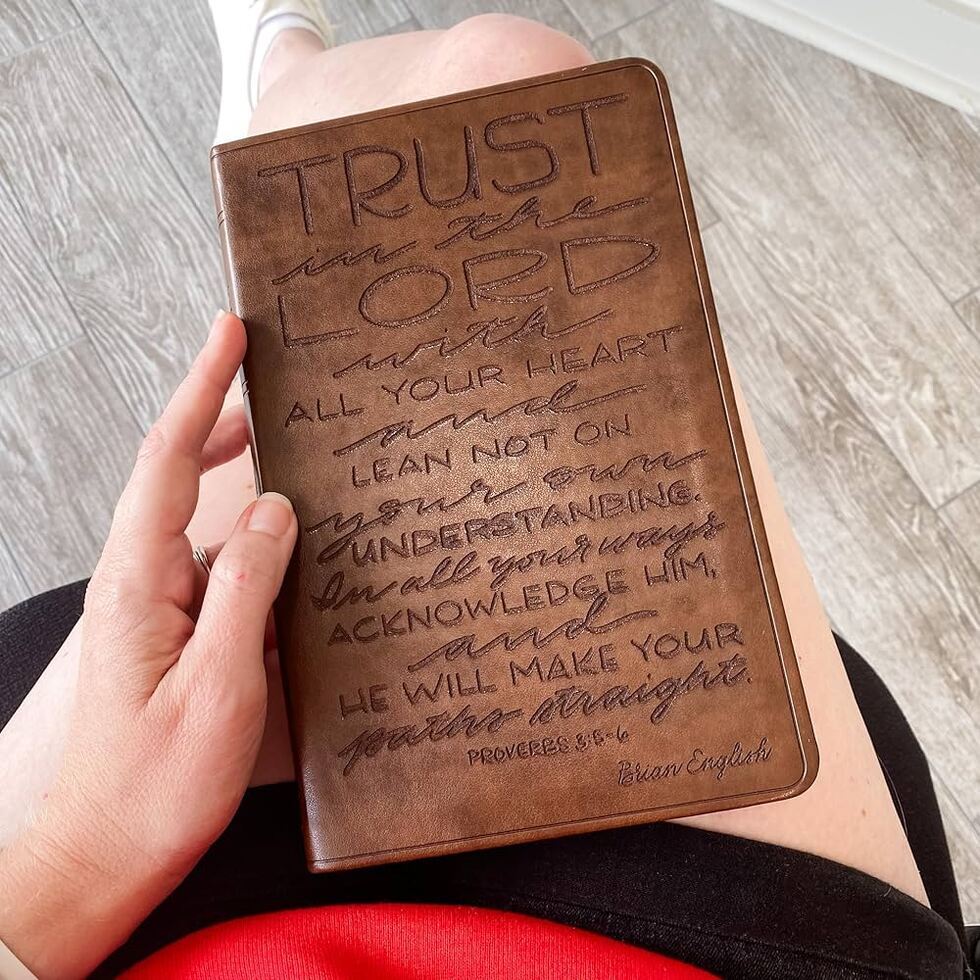 TRUST
in the
LORD
with
ALL YOUR HEART
and
LEAN NOT ON
your own
UNDERSTANDING.
In all your ways
ACKNOWLEDGE HIM,
and
HE WILL MAKE YOUR
paths straight.
PROVERBS 3:5-6
Brian English